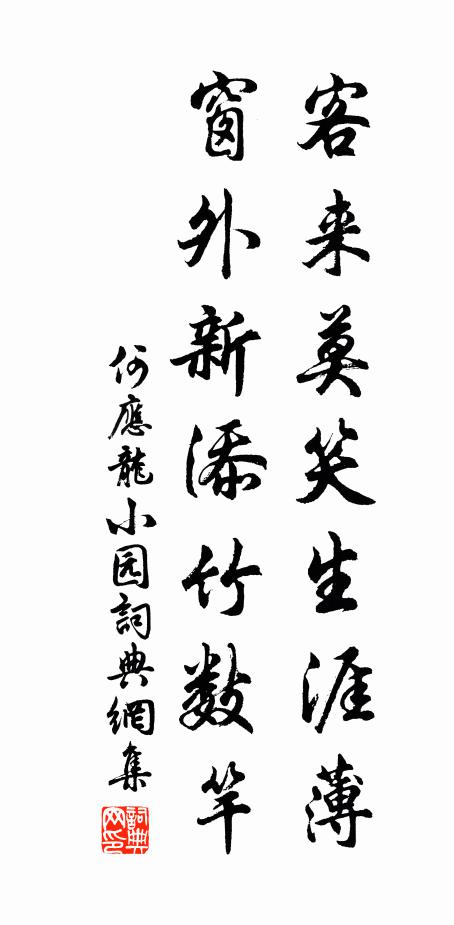 客来莫笑生涯薄
窗外新添竹数竿
何應龍小园詞典網集
詞典網印